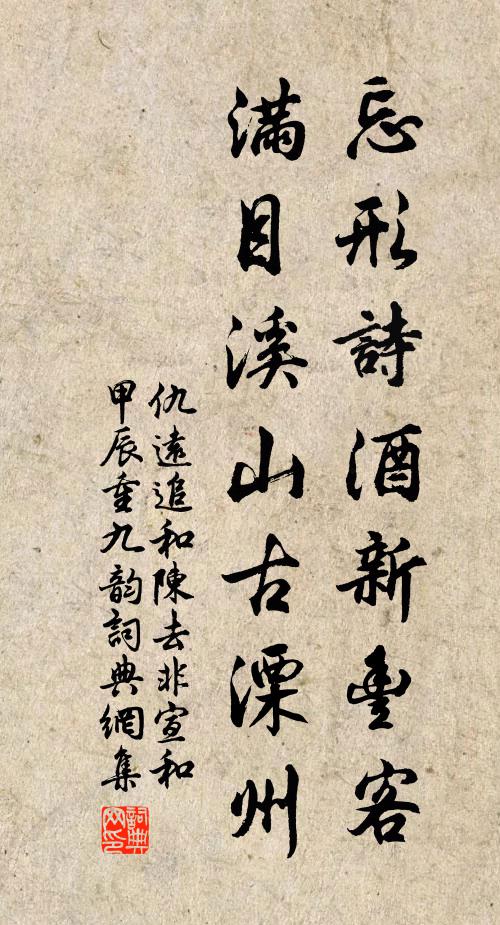 忘形詩酒新豐客
滿目溪山古溧州
仇遠追和陳去非宣和
甲辰重九韵詞典網集
詞典
网印